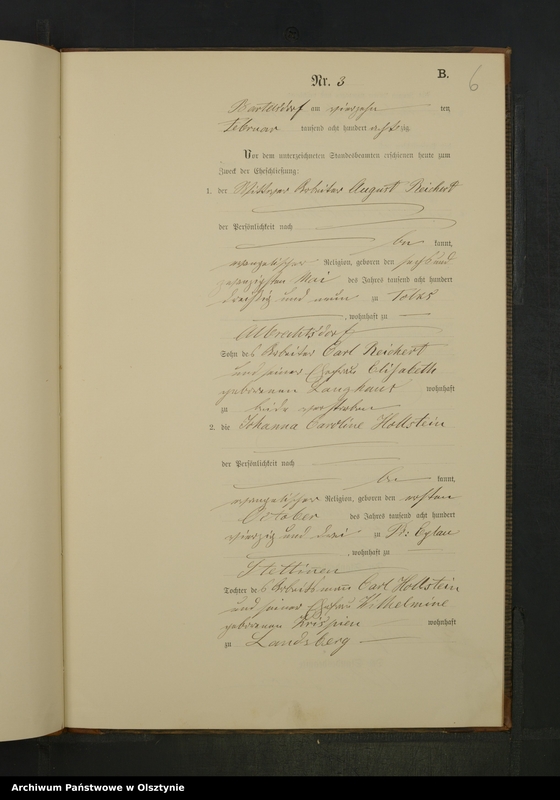 B.
6
Nr. 3
Bartelsdorf am vierzehn ten
Februar tausend acht hundert achtzig
Vor dem unterzeichneten Standesbeamten erschienen heute zum
Zweck der Eheschließung:
1. der Wittwer Arbeiter August Reichert
der Persönlichkeit nach
be kannt,
evangelischer Religion, geboren den sechs und
zwanzigsten Mai des Jahres tausend acht hundert
dreißig und neun zu Tolks
, wohnhaft zu
Albrechtsdorf
Sohn des Arbeiter Carl Reichert
und seiner Ehefrau Elisabeth
geborenen Langhans wohnhaft
zu beide verstorben
2. die Johanna Caroline Hollstein
der Persönlichkeit nach
be kannt,
evangelischer Religion, geboren den ersten
October des Jahres tausend acht hundert
vierzig und drei zu Pr: Eylau
, wohnhaft zu
Stettinen
Tochter des Arbeitsmann Carl Hollstein
und seiner Ehefrau Wilhelmine
geborenen Krispien wohnhaft
zu Landsberg
Archiwum Państwowe w Olsztynie